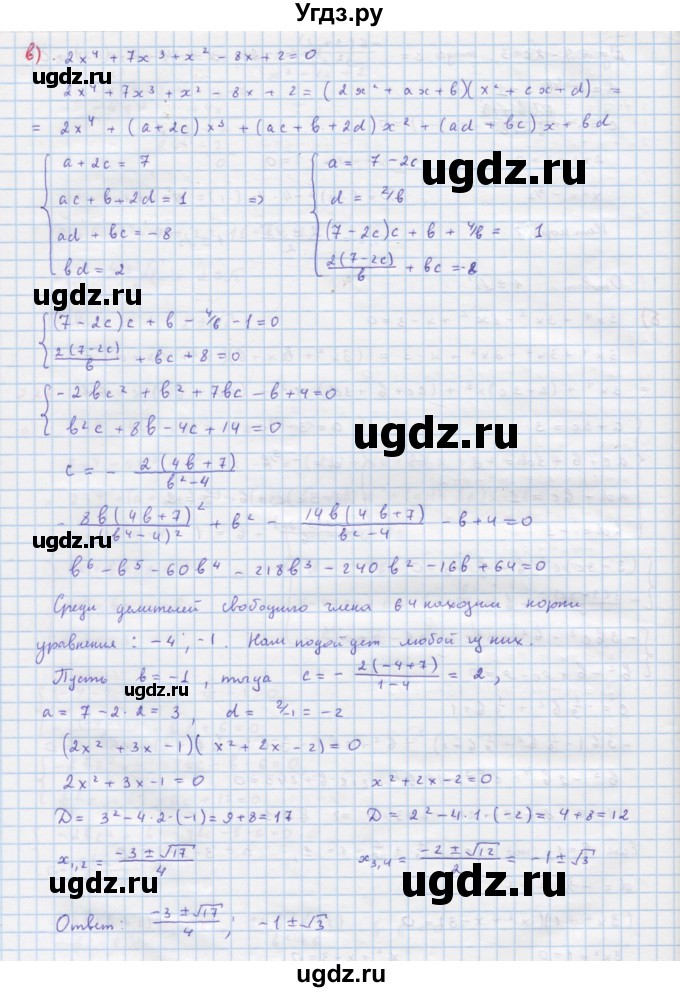 Угдз.ру
в) 2x⁴ + 7x³ + x² - 8x + 2 = 0
2x⁴ + 7x³ + x² - 8x + 2 = (2x² + ax + b)(x² + cx + d) =
= 2x⁴ + (a+2c)x³ + (ac + b + 2d)x² + (ad + bc)x + bd
{ a + 2c = 7 { a = 7 - 2c
ac + b + 2d = 1 => d = 2/b
ad + bc = -8 (7 - 2c)c + b + 4/b = 1
bd = 2 2(7-2c)/b + bc = -8
ugdz.ru
ugdz.ru
{ (7 - 2c)c + b - 4/b - 1 = 0
2(7-2c)/b + bc + 8 = 0
ugdz.ru
{ -2bc² + b² + 7bc - b + 4 = 0
b²c + 8b - 4c + 14 = 0
ugdz.ru
c = - 2(4b+7)/(b²-4)
- 8b(4b+7)²/(b⁴-4)² + b² - 14b(4b+7)/(b²-4) - b + 4 = 0
ugdz.ru
b⁶ - b⁵ - 60b⁴ - 218b³ - 240b² - 16b + 64 = 0
Среди делителей свободного члена 64 находим корни
уравнения: -4; -1. Нам подойдет любой из них.
Пусть b = -1, тогда c = - 2(-4+7)/(1-4) = 2,
ugdz.ru
a = 7 - 2·2 = 3, d = 2/-1 = -2
(2x² + 3x - 1)(x² + 2x - 2) = 0
2x² + 3x - 1 = 0 x² + 2x - 2 = 0
D = 3² - 4·2·(-1) = 9 + 8 = 17 D = 2² - 4·1·(-2) = 4 + 8 = 12
x₁,₂ = (-3 ± √17)/4 x₃,₄ = (-2 ± √12)/2 = -1 ± √3
ugdz.ru
ugdz.ru
Ответ: (-3 ± √17)/4; -1 ± √3
ugdz.ru